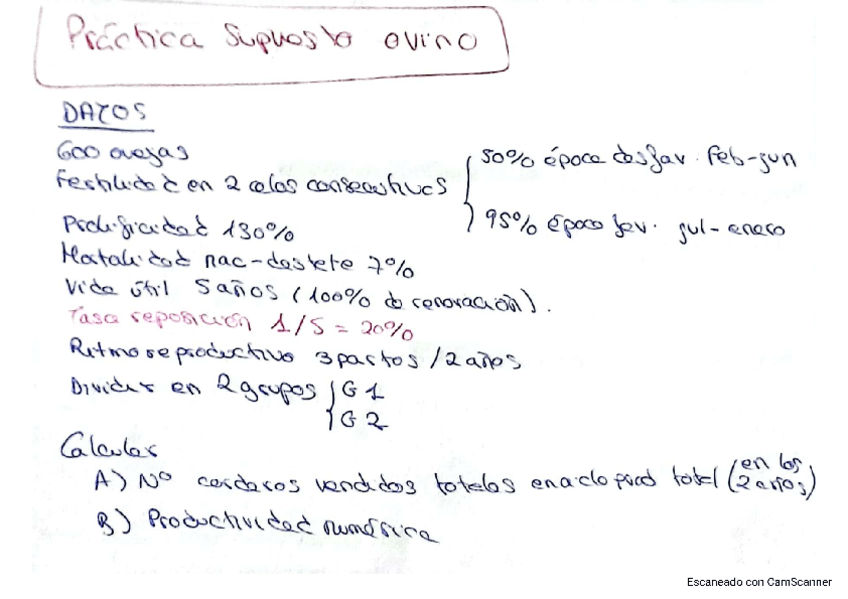 Práctica supuesto ovino
DATOS
600 ovejas
Fertilidad en 2 celos consecutivos
50% época desfav. Feb-jun
95% época fav. jul-enero
Prolificidad 130%
Mortalidad nac-destete 7%
Vida útil 5 años (100% de renovación).
Tasa reposición 1/5 = 20%
Ritmo reproductivo 3 partos / 2 años
Dividir en 2 grupos
G1
G2
Calcular
A) Nº corderos vendidos totales en ciclo prod total (en los 2 años)
B) Productividad numérica
Escaneado con CamScanner